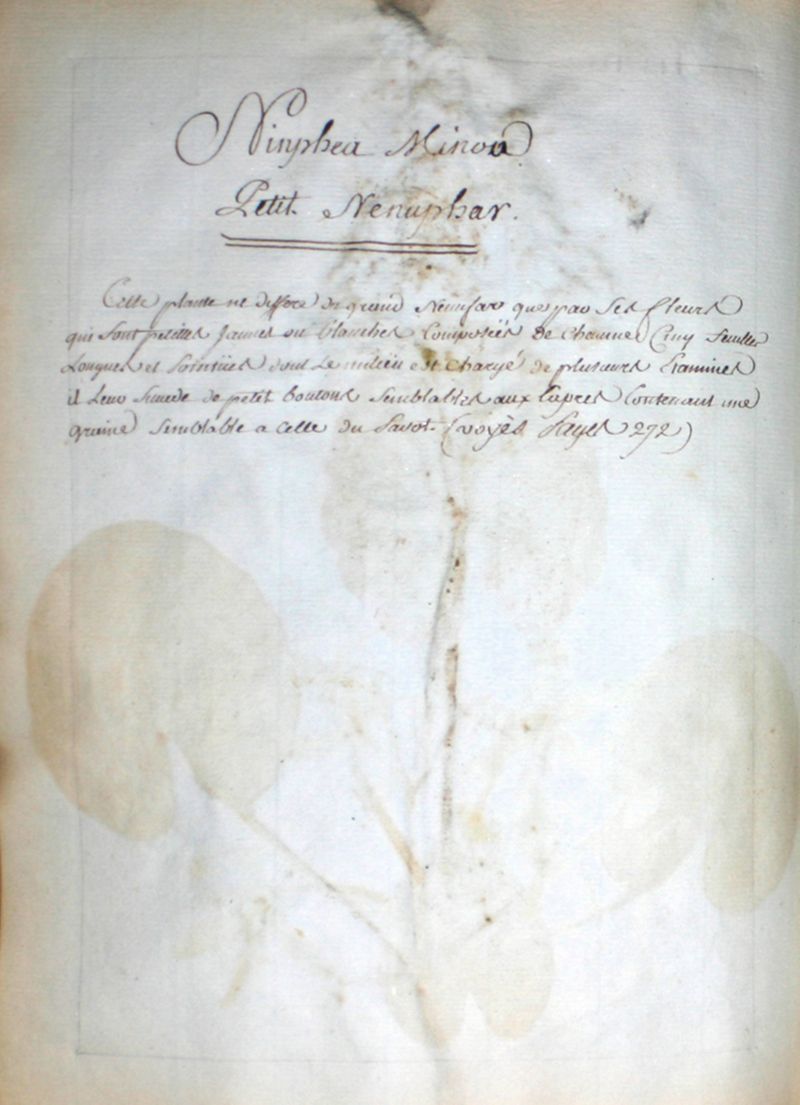 Ninphea Minor
Petit Nenuphar.
Cette plante ne differe du grand Nenufar que par ses fleurs
qui sont petittes Jaunes ou blanches Composées De Chacune Cinq feuilles
Longues et pointües dont Le milieu est Chargé de plusieurs Etamines
il Leur succede de petit boutons semblables aux Capres Contenant une
graine semblable a celle du Pavot. (voyès Pages 272)